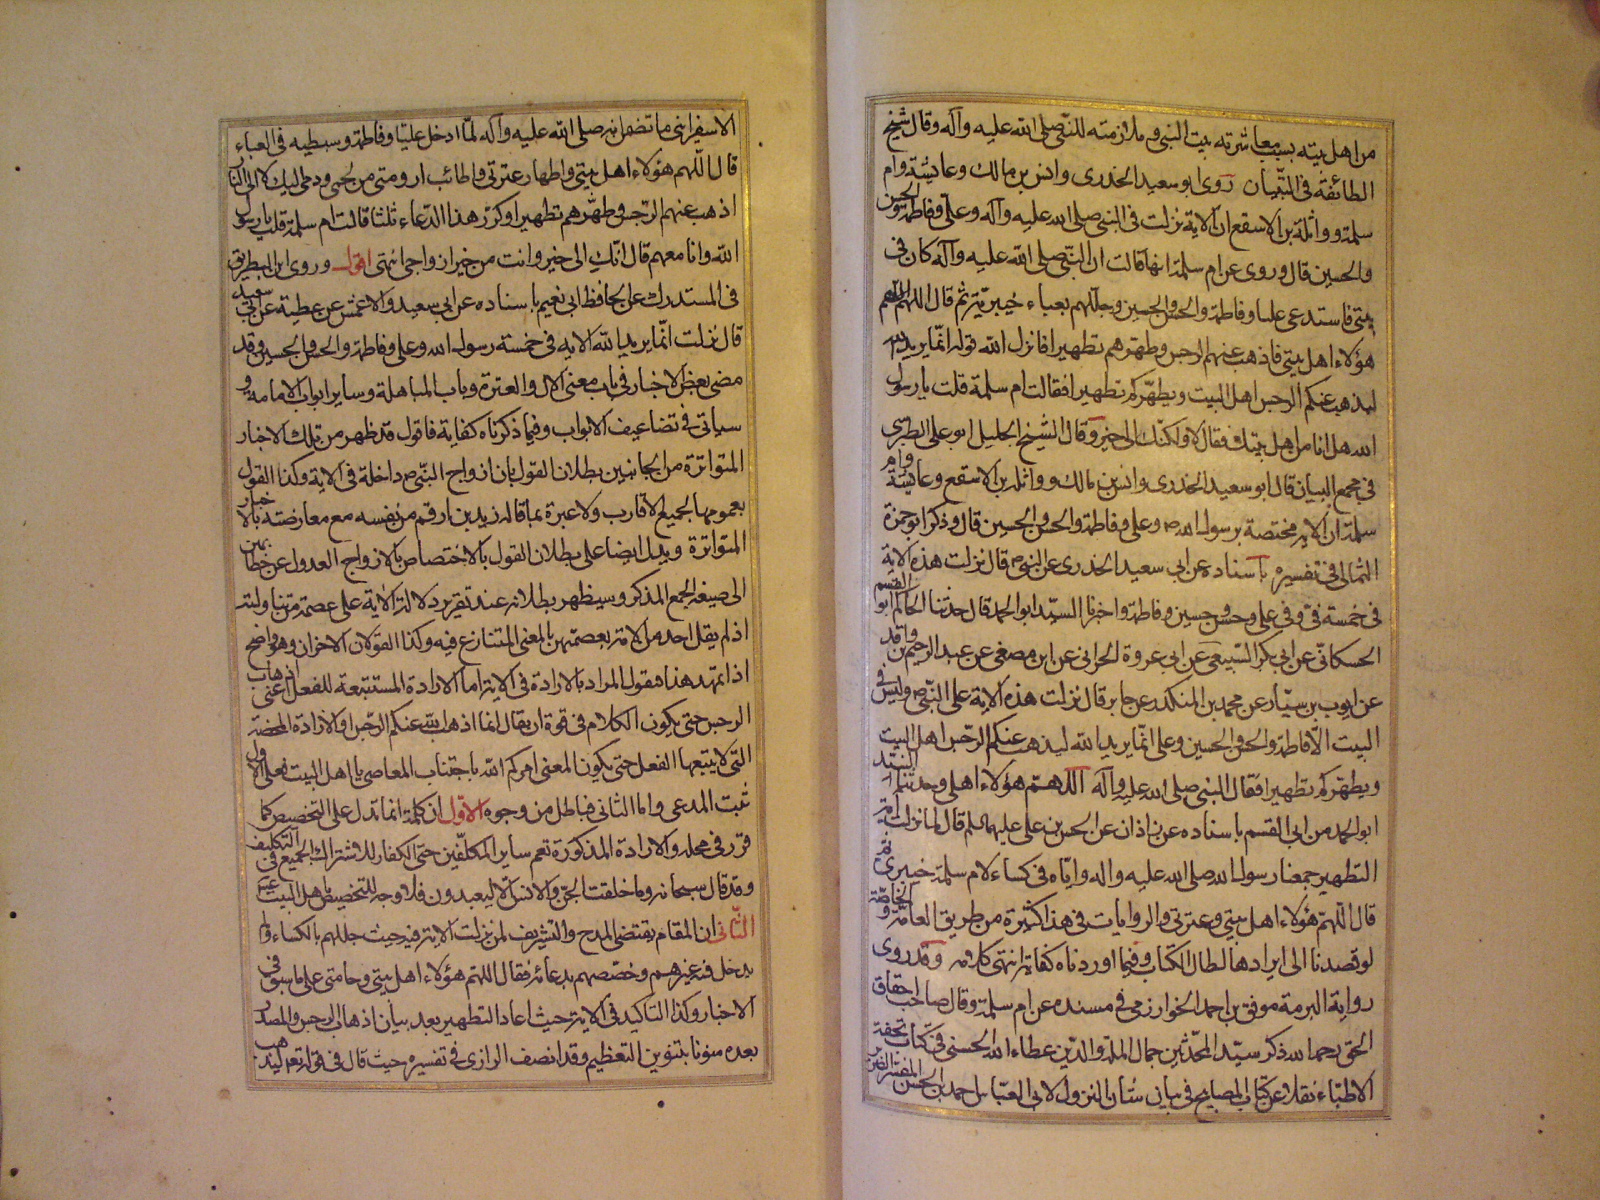 من اهل بيته بسبب معاشرته بيت النبي وملازمته للنبي صلى الله عليه وآله وقال شيخ
الطائفة في التبيان روى ابو سعيد الخدرى وانس بن مالك وعايشة وام
سلمة وواثلة بن الاسقع ان الاية نزلت في النبي صلى الله عليه وآله وعلى وفاطمة والحسن
والحسين قال وروى عن ام سلمة انها قالت ان النبي صلى الله عليه وآله كان في
بيتي فاستدعى عليا وفاطمة والحسن والحسين وجللهم بعباء خيبرية ثم قال اللهم
هؤلاء اهل بيتي فاذهب عنهم الرجس وطهرهم تطهيرا فانزل الله قوله انما يريد الله
ليذهب عنكم الرجس اهل البيت ويطهركم تطهيرا فقالت ام سلمة قلت يا رسول
الله هل انا من اهل بيتك فقال لا ولكنك الى خير وقال الشيخ الجليل ابو على الطبرى
في مجمع البيان قال ابو سعيد الخدرى وانس بن مالك وواثلة بن الاسقع وعايشة وام
سلمة ان الاية مختصة برسول الله ص وعلى وفاطمة والحسن والحسين قال وذكر ابو حمزة
الثمالى في تفسيره باسناده عن ابى سعيد الخدرى عن النبي ص قال نزلت هذه الاية
في خمسة في وفي على وحسن وحسين وفاطمة واخبرنا السيد ابو الحمد قال حدثنا الحاكم ابو القسم
الحسكانى عن ابى بكر السبيعى عن ابى عروة الحرانى عن ابن مصغى عن عبد الرحيم بن واقد
عن ايوب بن سيار عن محمد بن المنكدر عن جابر قال نزلت هذه الاية على النبي ص وليس في
البيت الا فاطمة والحسن والحسين وعلى انما يريد الله ليذهب عنكم الرجس اهل البيت
ويطهركم تطهيرا فقال النبي صلى الله عليه وآله اللهم هؤلاء اهلى وحدثنا السيد
ابو الحمد عن ابى القسم باسناده عن زاذان عن الحسن بن على عليهما السلم قال لما نزلت اية
التطهير جمعنا رسول الله صلى الله عليه واله واياه في كساء لام سلمة خيبرى ثم
قال اللهم هؤلاء اهل بيتي وعترتى والروايات في هذا كثيرة من طريق العامة والخاصة
لو قصدنا الى ايرادها لطال الكتاب وفيما اوردناه كفاية انتهى كلامه وقد روى
رواية البرمة موفق بن احمد الخوارزمى في مسنده عن ام سلمة وقال صاحب احقاق
الحق رحمه الله ذكر سيد المحدثين جمال الملة والدين عطاء الله الحسنى في كتاب تحفة
الاطباء نقلا عن كتاب المصابيح في بيان شان النزول لابى العباس احمد بن الحسن المفسر الضرير
الاسفراينى ما تضمن انه صلى الله عليه وآله لما ادخل عليا وفاطمة وسبطيه في العباء
قال اللهم هؤلاء اهل بيتي واطهار عترتى واطائب ارومتى من لحمى ودمى اليك لا الى النار
اذهب عنهم الرجس وطهرهم تطهيرا وكرر هذا الدعاء ثلثا قالت ام سلمة قلت يا رسول
الله وانا معهم قال انك الى خير وانت من خير ازواجى انتهى اقول وروى ابن البطريق
في المستدرك عن الحافظ ابى نعيم باسناده عن ابى سعيد والاعمش عن عطية عن ابى سعيد
قال نزلت انما يريد الله الاية في خمسة رسول الله وعلى وفاطمة والحسن والحسين وقد
مضى بعض الاخبار في باب معنى الال والعترة وباب المباهلة وساير ابواب الامامة و
سياتى في تضاعيف الابواب وفيما ذكرناه كفاية فاقول قد ظهر من تلك الاخبار
المتواترة من الجانبين بطلان القول بان ازواج النبي ص داخلة في الاية وكذا القول
بعمومها لجميع الاقارب ولا عبرة بما قاله زيد بن ارقم من نفسه مع معارضته بالاخبار
المتواترة ويدل ايضا على بطلان القول بالاختصاص بالازواج العدول عن خطابهن
الى صيغة الجمع المذكر وسيظهر بطلانه عند تقرير دلالة الاية على عصمة من تناولته
اذ لم يقل احد من الامة بعصمتهن بالمعنى المتنازع فيه وكذا القولان الاخران وهو واضح
اذا تمهد هذا فنقول المراد بالارادة في الاية اما الارادة المستتبعة للفعل اعنى اذهاب
الرجس حتى يكون الكلام في قوة ان يقال انما اذهب الله عنكم الرجس او الارادة المحضة
التي لا يتبعها الفعل حتى يكون المعنى امركم الله باجتناب المعاصى يا اهل البيت فعلى الاول
ثبت المدعى واما الثانى فباطل من وجوه الاول ان كلمة انما تدل على التخصيص كما
قرر في محله والارادة المذكورة تعم ساير المكلفين حتى الكفار لاشتراك الجميع في التكليف
وقد قال سبحانه وما خلقت الجن والانس الا ليعبدون فلا وجه للتخصيص باهل البيت عليهم
الثانى ان المقام يقتضى المدح والتشريف لمن نزلت الاية فيه حيث جللهم بالكساء ولم
يدخل فيه غيرهم وخصصهم بدعائه فقال اللهم هؤلاء اهل بيتي وحامتى على ما سبق في
الاخبار وكذا التاكيد في الاية حيث اعاد التطهير بعد بيان اذهاب الرجس والمصدر
بعده منونا بتنوين التعظيم وقد انصف الرازى في تفسيره حيث قال في قوله تعالى ليذهب